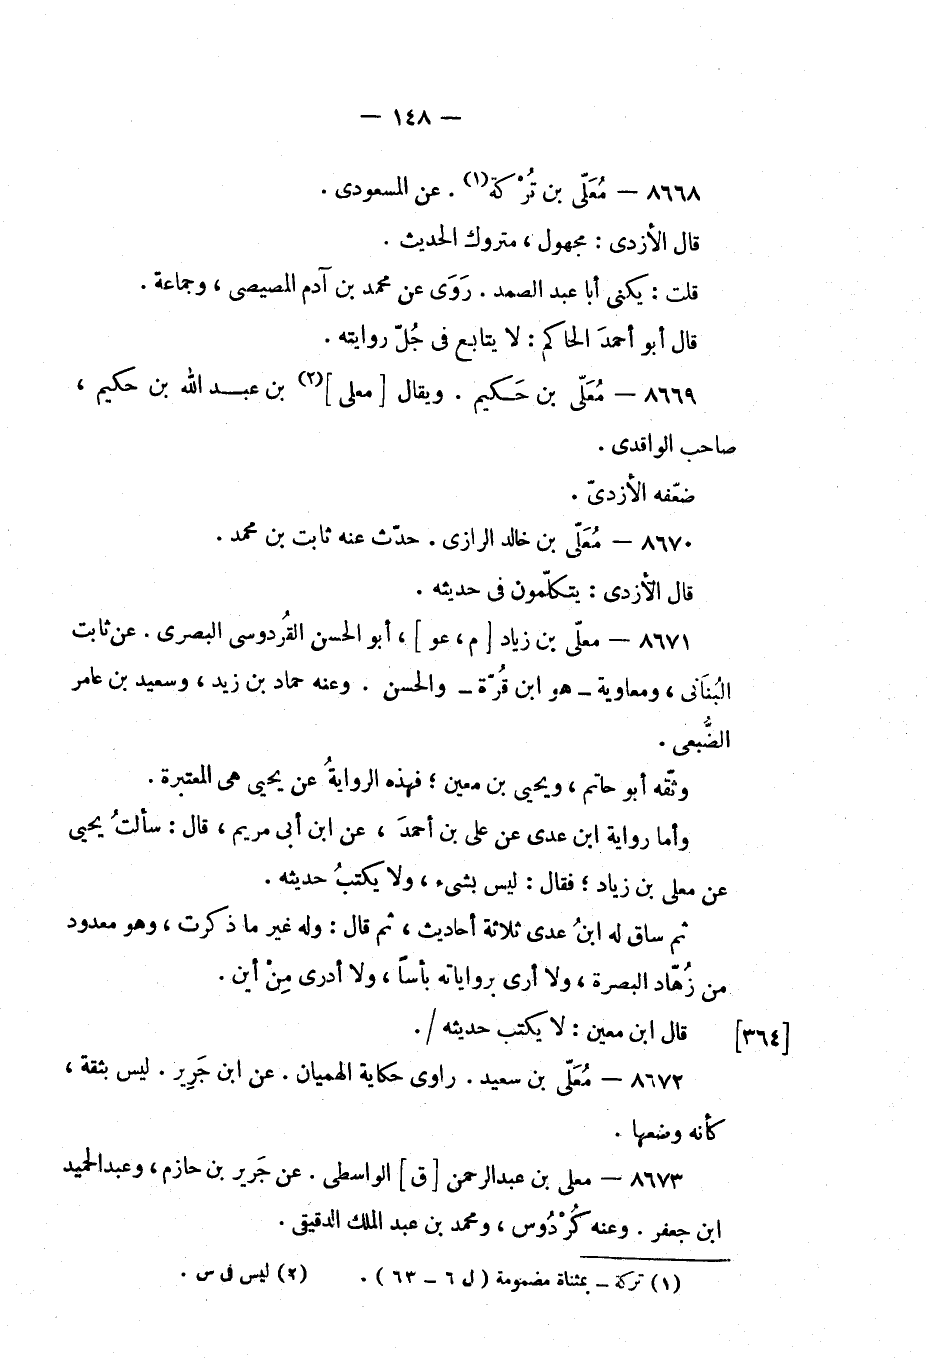 — ١٤٨ —
٨٦٦٨ — مُعَلّى بن تُرْكة(١) . عن المسعودى .
قال الأزدى : مجهول ، متروك الحديث .
قلت : يكنى أبا عبد الصمد . رَوَى عن محمد بن آدم المصيصى ، وجماعة .
قال أبو أحمدَ الحاكم : لا يتابع فى جُلّ روايته .
٨٦٦٩ — مُعَلّى بن حَكيم . ويقال [ معلى ](٢) بن عبد الله بن حكيم ،
صاحب الواقدى .
ضعّفه الأزدىّ .
٨٦٧٠ — مُعَلّى بن خالد الرازى . حدّث عنه ثابت بن محمد .
قال الأزدى : يتكلّمون فى حديثه .
٨٦٧١ — معلّى بن زياد [ م ، عو ] ، أبو الحسن القُردوسى البصرى . عن ثابت
البُنَانى ، ومعاوية – هو ابن قُرّة – والحسن . وعنه حماد بن زيد ، وسعيد بن عامر
الضُّبعى .
وثّقه أبو حاتم ، ويحيى بن معين ؛ فهذه الروايةُ عن يحيى هى المعتبرة .
وأما رواية ابن عدى عن على بن أحمدَ ، عن ابن أبى مريم ، قال : سألتُ يحيى
عن معلى بن زياد ؛ فقال : ليس بشىء ، ولا يكتبُ حديثه .
ثم ساق له ابنُ عدى ثلاثة أحاديث ، ثم قال : وله غير ما ذكرت ، وهو معدود
من زُهّاد البصرة ، ولا أرى برواياته بأساً ، ولا أدرى مِنْ أين .
قال ابن معين : لا يكتب حديثه / . [٣٦٤]
٨٦٧٢ — مُعَلّى بن سعيد . راوى حكاية الهميان . عن ابن جَرِير . ليس بثقة ،
كأنه وضعها .
٨٦٧٣ — معلى بن عبدالرحمن [ ق ] الواسطى . عن جَرير بن حازم ، وعبدالحميد
ابن جعفر . وعنه كُرْدُوس ، ومحمد بن عبد الملك الدقيقى .
(١) تركة – بمثناة مضمومة ( ل ٦ – ٦٣ ) . (٢) ليس فى س .